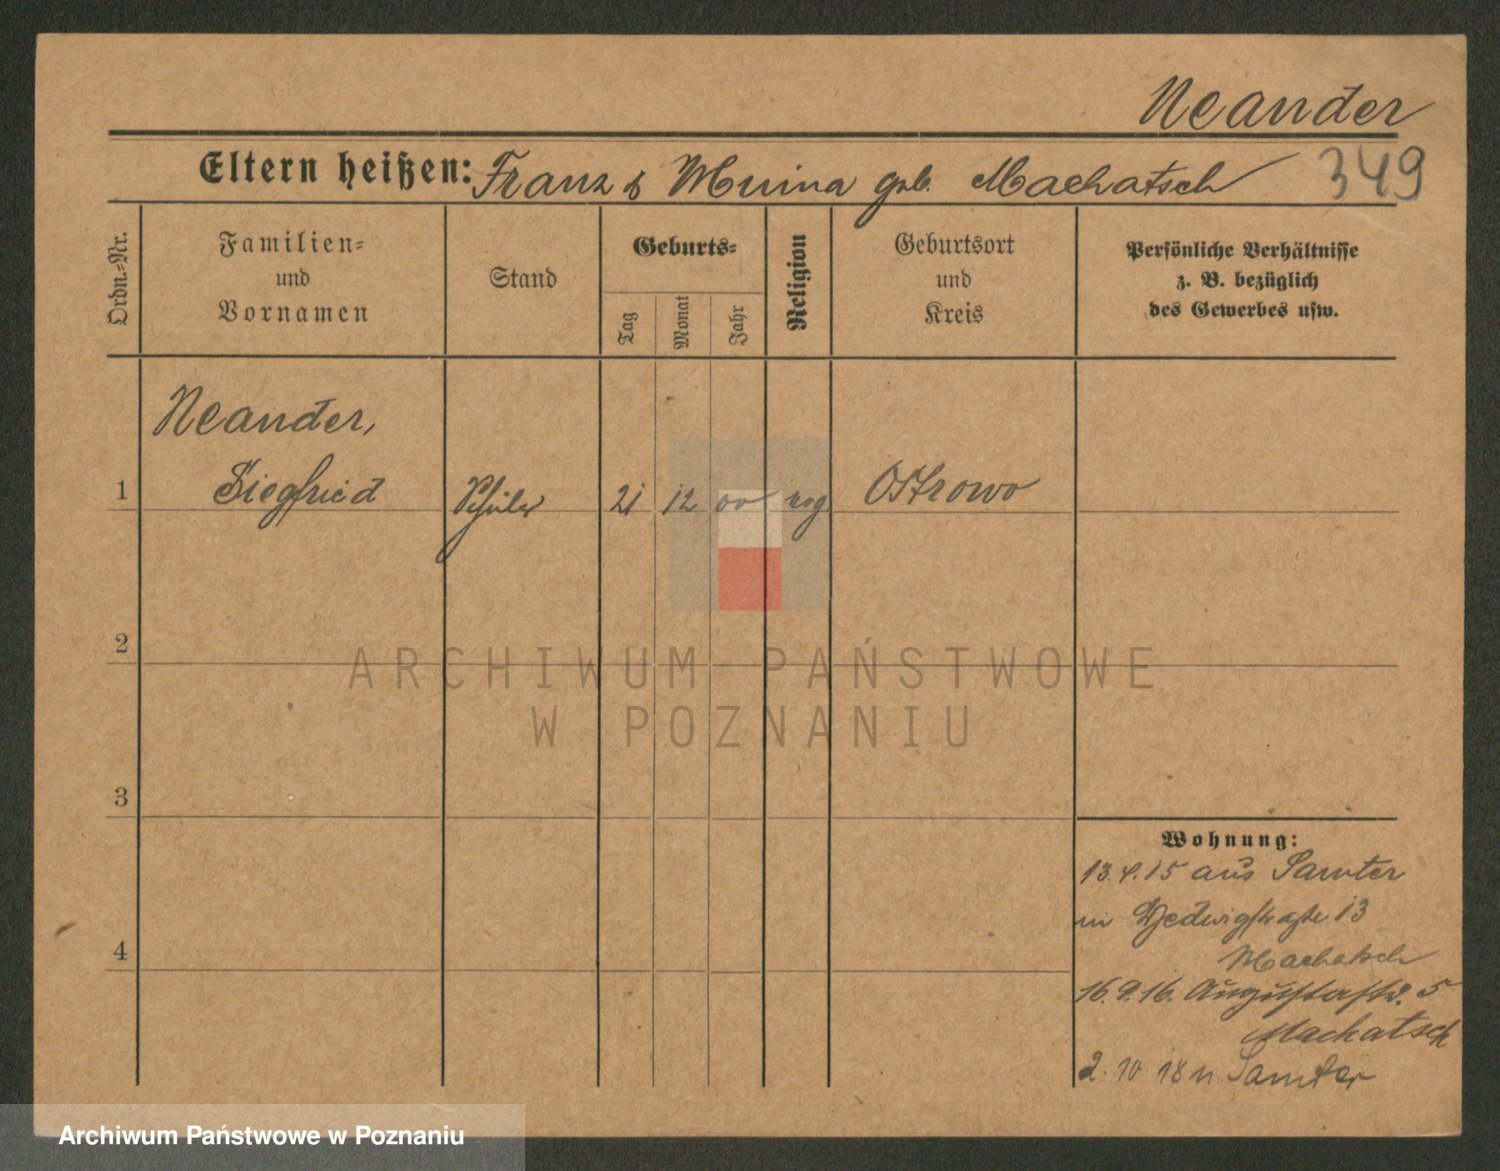 Neander
Eltern heißen: Franz & geb. Machatsch 349
Ordn.-Nr.
Familien-
und
Vornamen
Stand
Geburts-
Tag
Monat
Jahr
Religion
Geburtsort
und
Kreis
Persönliche Verhältnisse
z. B. bezüglich
des Gewerbes usw.
Neander,
1 Siegfried Schüler 21 12 00 Ostrowo
2
3
4
Wohnung:
13.4.15 aus Samter
in Hedwigstraße 13
Machatsch
16.9.16. Augustastr. 5
Machatsch
2.10.18 n Samter
ARCHIWUM PAŃSTWOWE
W POZNANIU
Archiwum Państwowe w Poznaniu